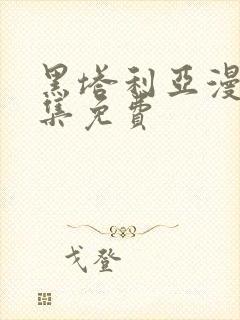 黑塔利亚漫
集免费
戈登